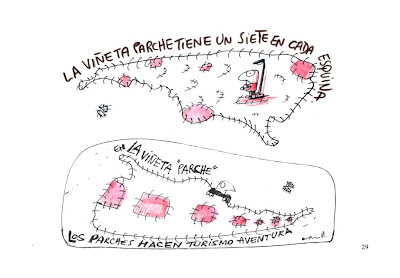 LA VIÑETA PARCHE TIENE UN SIETE EN CADA ESQUINA
EN LA VIÑETA "PARCHE"
LOS PARCHES HACEN TURISMO AVENTURA
29